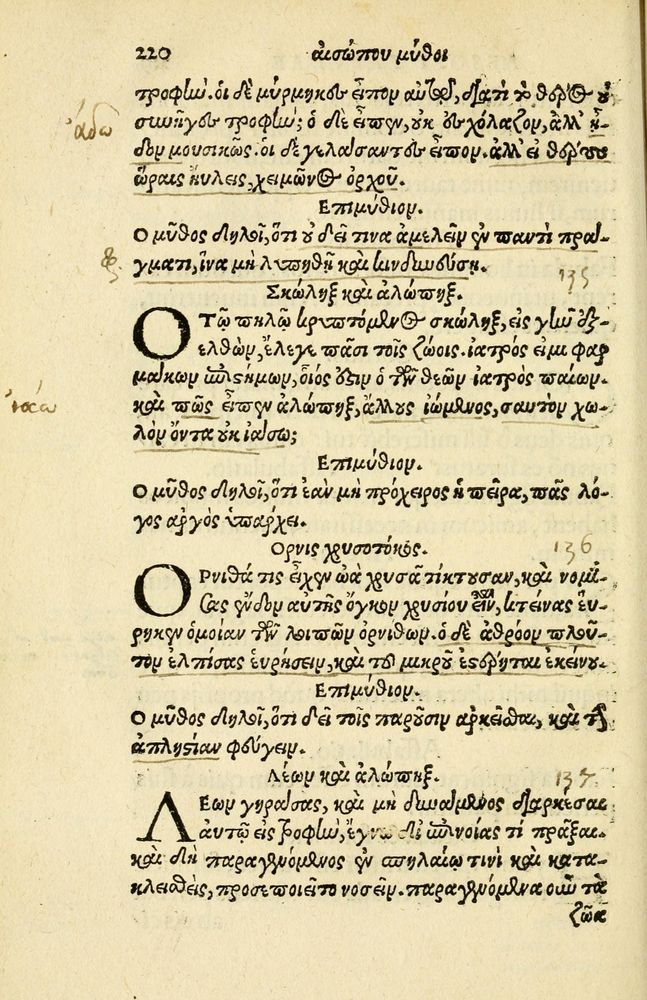 220 αισώπου μῦθοι
τροφὴν. ὁι δὲ μύρμηκες εἶπον αυτῷ, διατὶ τὸ θέρος οὐ
ᾄδω
συνῆγες τροφὴν; ὁ δὲ εἶπεν, οὐκ ἐσχόλαζον, ἀλλ' ᾖ-
δον μουσικῶς. ὁι δὲ γελάσαντες εἶπον. ἀλλ' εἰ θέρους
ὥραις ἤυλεις, χειμῶνος ὀρχοῦ.
Επιμύθιον.
Ο μῦθος δηλοῖ, ὅτι οὐ δεῖ τινα ἀμελεῖν ἐν παντὶ πρά-
γματι, ἵνα μὴ λυπηθῇ καὶ κινδυνεύσῃ.
135
Σκώληξ καὶ ἀλώπηξ.
Ο Τῷ πηλῷ κρυπτόμενος σκώληξ, εἰς γῆν ἐξ-
ελθὼν, ἔλεγε πᾶσι τοῖς ζώοις. ἰατρός ειμι φαρ
μάκων ἐπιστήμων, οἷός ἐστιν ὁ τῶν θεῶν ἰατρὸς παίων.
ἰάω
καὶ πῶς εἶπεν ἀλώπηξ, ἄλλους ἰώμενος, σαυτὸν χω-
λὸν ὄντα οὐκ ιάσω;
Επιμύθιον.
Ο μῦθος δηλοῖ, ὅτι ἐὰν μὴ πρόχειρος ἡ πεῖρα, πᾶς λό-
γος αργὸς ὑπάρχει.
Ορνις χρυσοτόκος.
136
ΟΡνιθά τις εἶχεν ὠὰ χρυσᾶ τίκτουσαν, καὶ νομί-
σας ἔνδον αὐτῆς ὄγκον χρυσίου εἶναι, κτείνας εὕ-
ρηκεν ὁμοίαν τῶν λοιπῶν ὀρνίθων. ὁ δὲ ἀθρόον πλοῦ-
τον ἐλπίσας ἑυρήσειν, καὶ τοῦ μικροῦ ἐστέρηται ἐκείνου.
Επιμύθιον.
Ο μῦθος δηλοῖ, ὅτι δεῖ τοῖς παροῦσιν αρκεῖσθαι, καὶ τὴν
ἀπληστίαν φεύγειν.
Λέων καὶ ἀλώπηξ.
137
ΛΕων γηράσας, καὶ μὴ δυνάμενος διαρκέσαι
ἁυτῷ εἰς τροφὴν, ἔγνω δι' ἐπινοίας τί πρᾶξαι.
καὶ δὴ παραγενόμενος ἐν σπηλαίῳ τινὶ καὶ κατα-
κλειθεὶς, προσεποιεῖτο νοσεῖν. παραγενόμενα οὖν τὰ
ζῶα